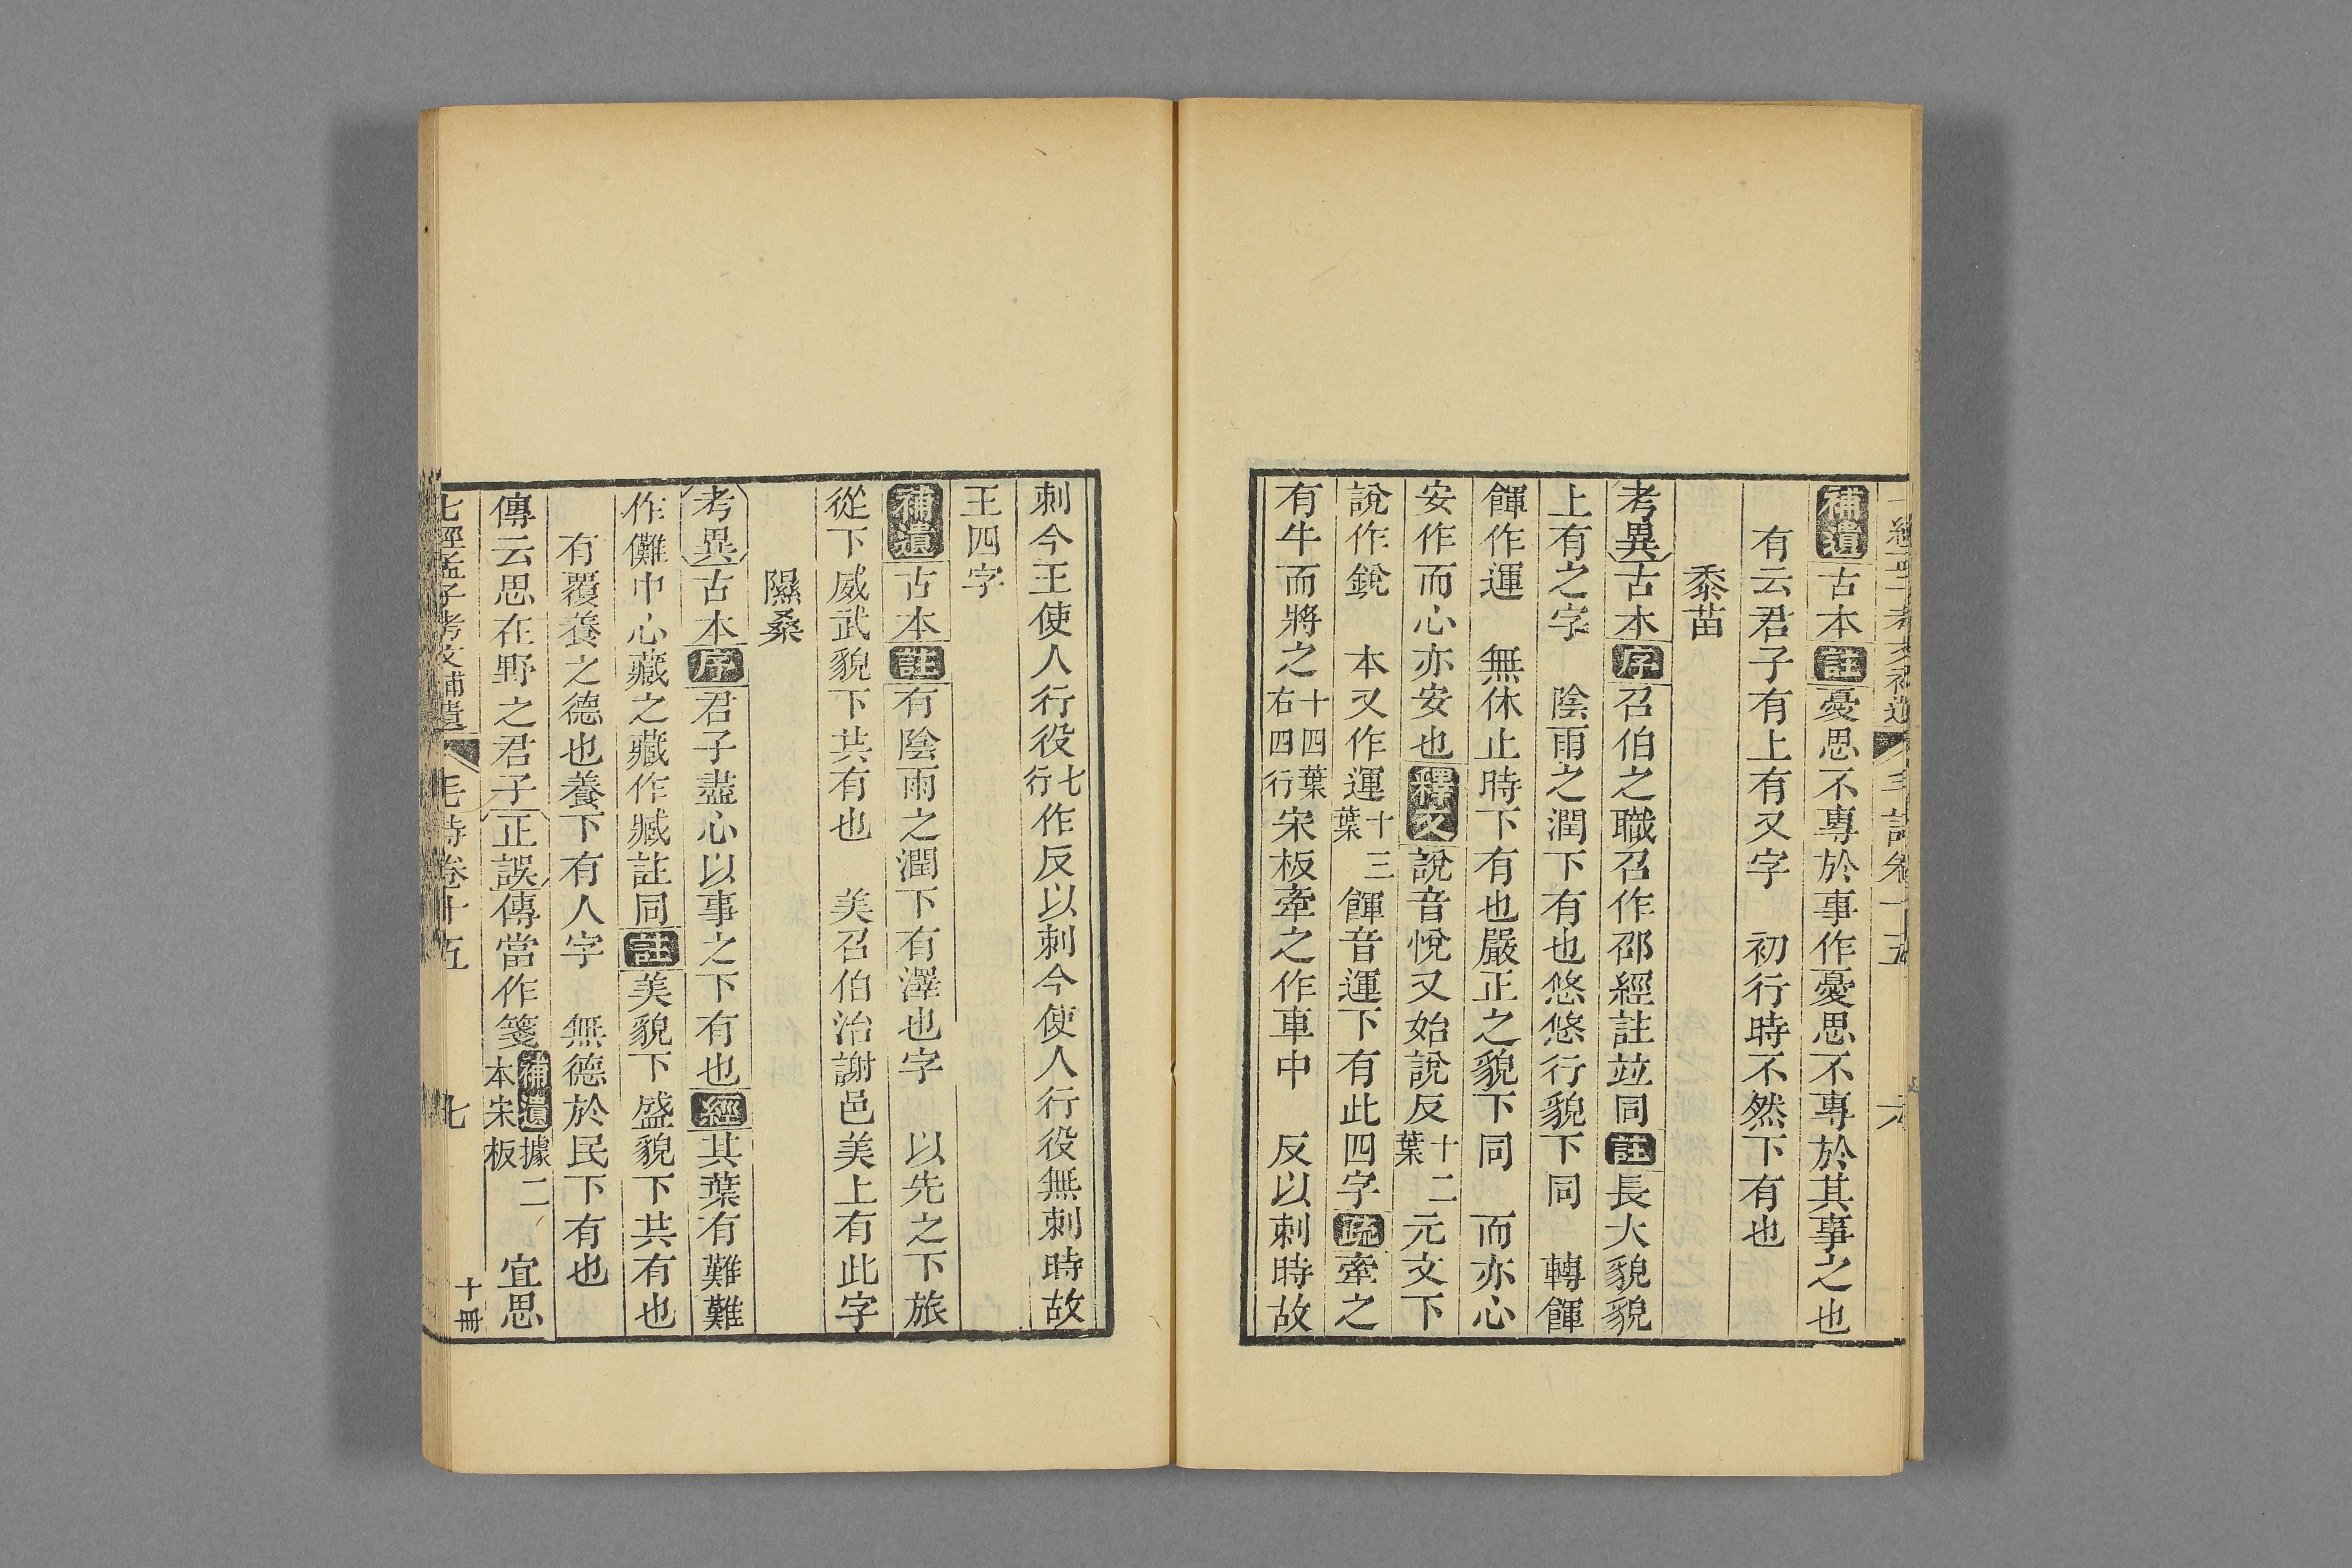 補遺古本註憂思不專於事作憂思不專於其事之也
有云君子有上有又字　初行時不然下有也
黍苗
考異古本序召伯之職召作邵經註竝同註長大貌貌
上有之字　陰雨之潤下有也悠悠行貌下同　轉餫
餫作運　無休止時下有也嚴正之貌下同　而亦心
安作而心亦安也釋文說音悅又始說反十二葉元文下
說作銳　本又作運十三葉餫音運下有此四字疏牽之
有牛而將之十四葉右四行宋板牽之作車中　反以刺時故
刺今王使人行役七行作反以刺今使人行役無刺時故
王四字
補遺古本註有陰雨之潤下有澤也字　以先之下旅
從下威武貌下共有也　美召伯治謝邑美上有此字
隰桑
考異古本序君子盡心以事之下有也經其葉有難難
作儺中心藏之藏作臧註同註美貌下盛貌下共有也
有覆養之德也養下有人字　無德於民下有也
傳云思在野之君子正誤傳當作箋補遺據二本宋板　宜思
七經孟子考文補遺　毛詩卷十五　七　十冊